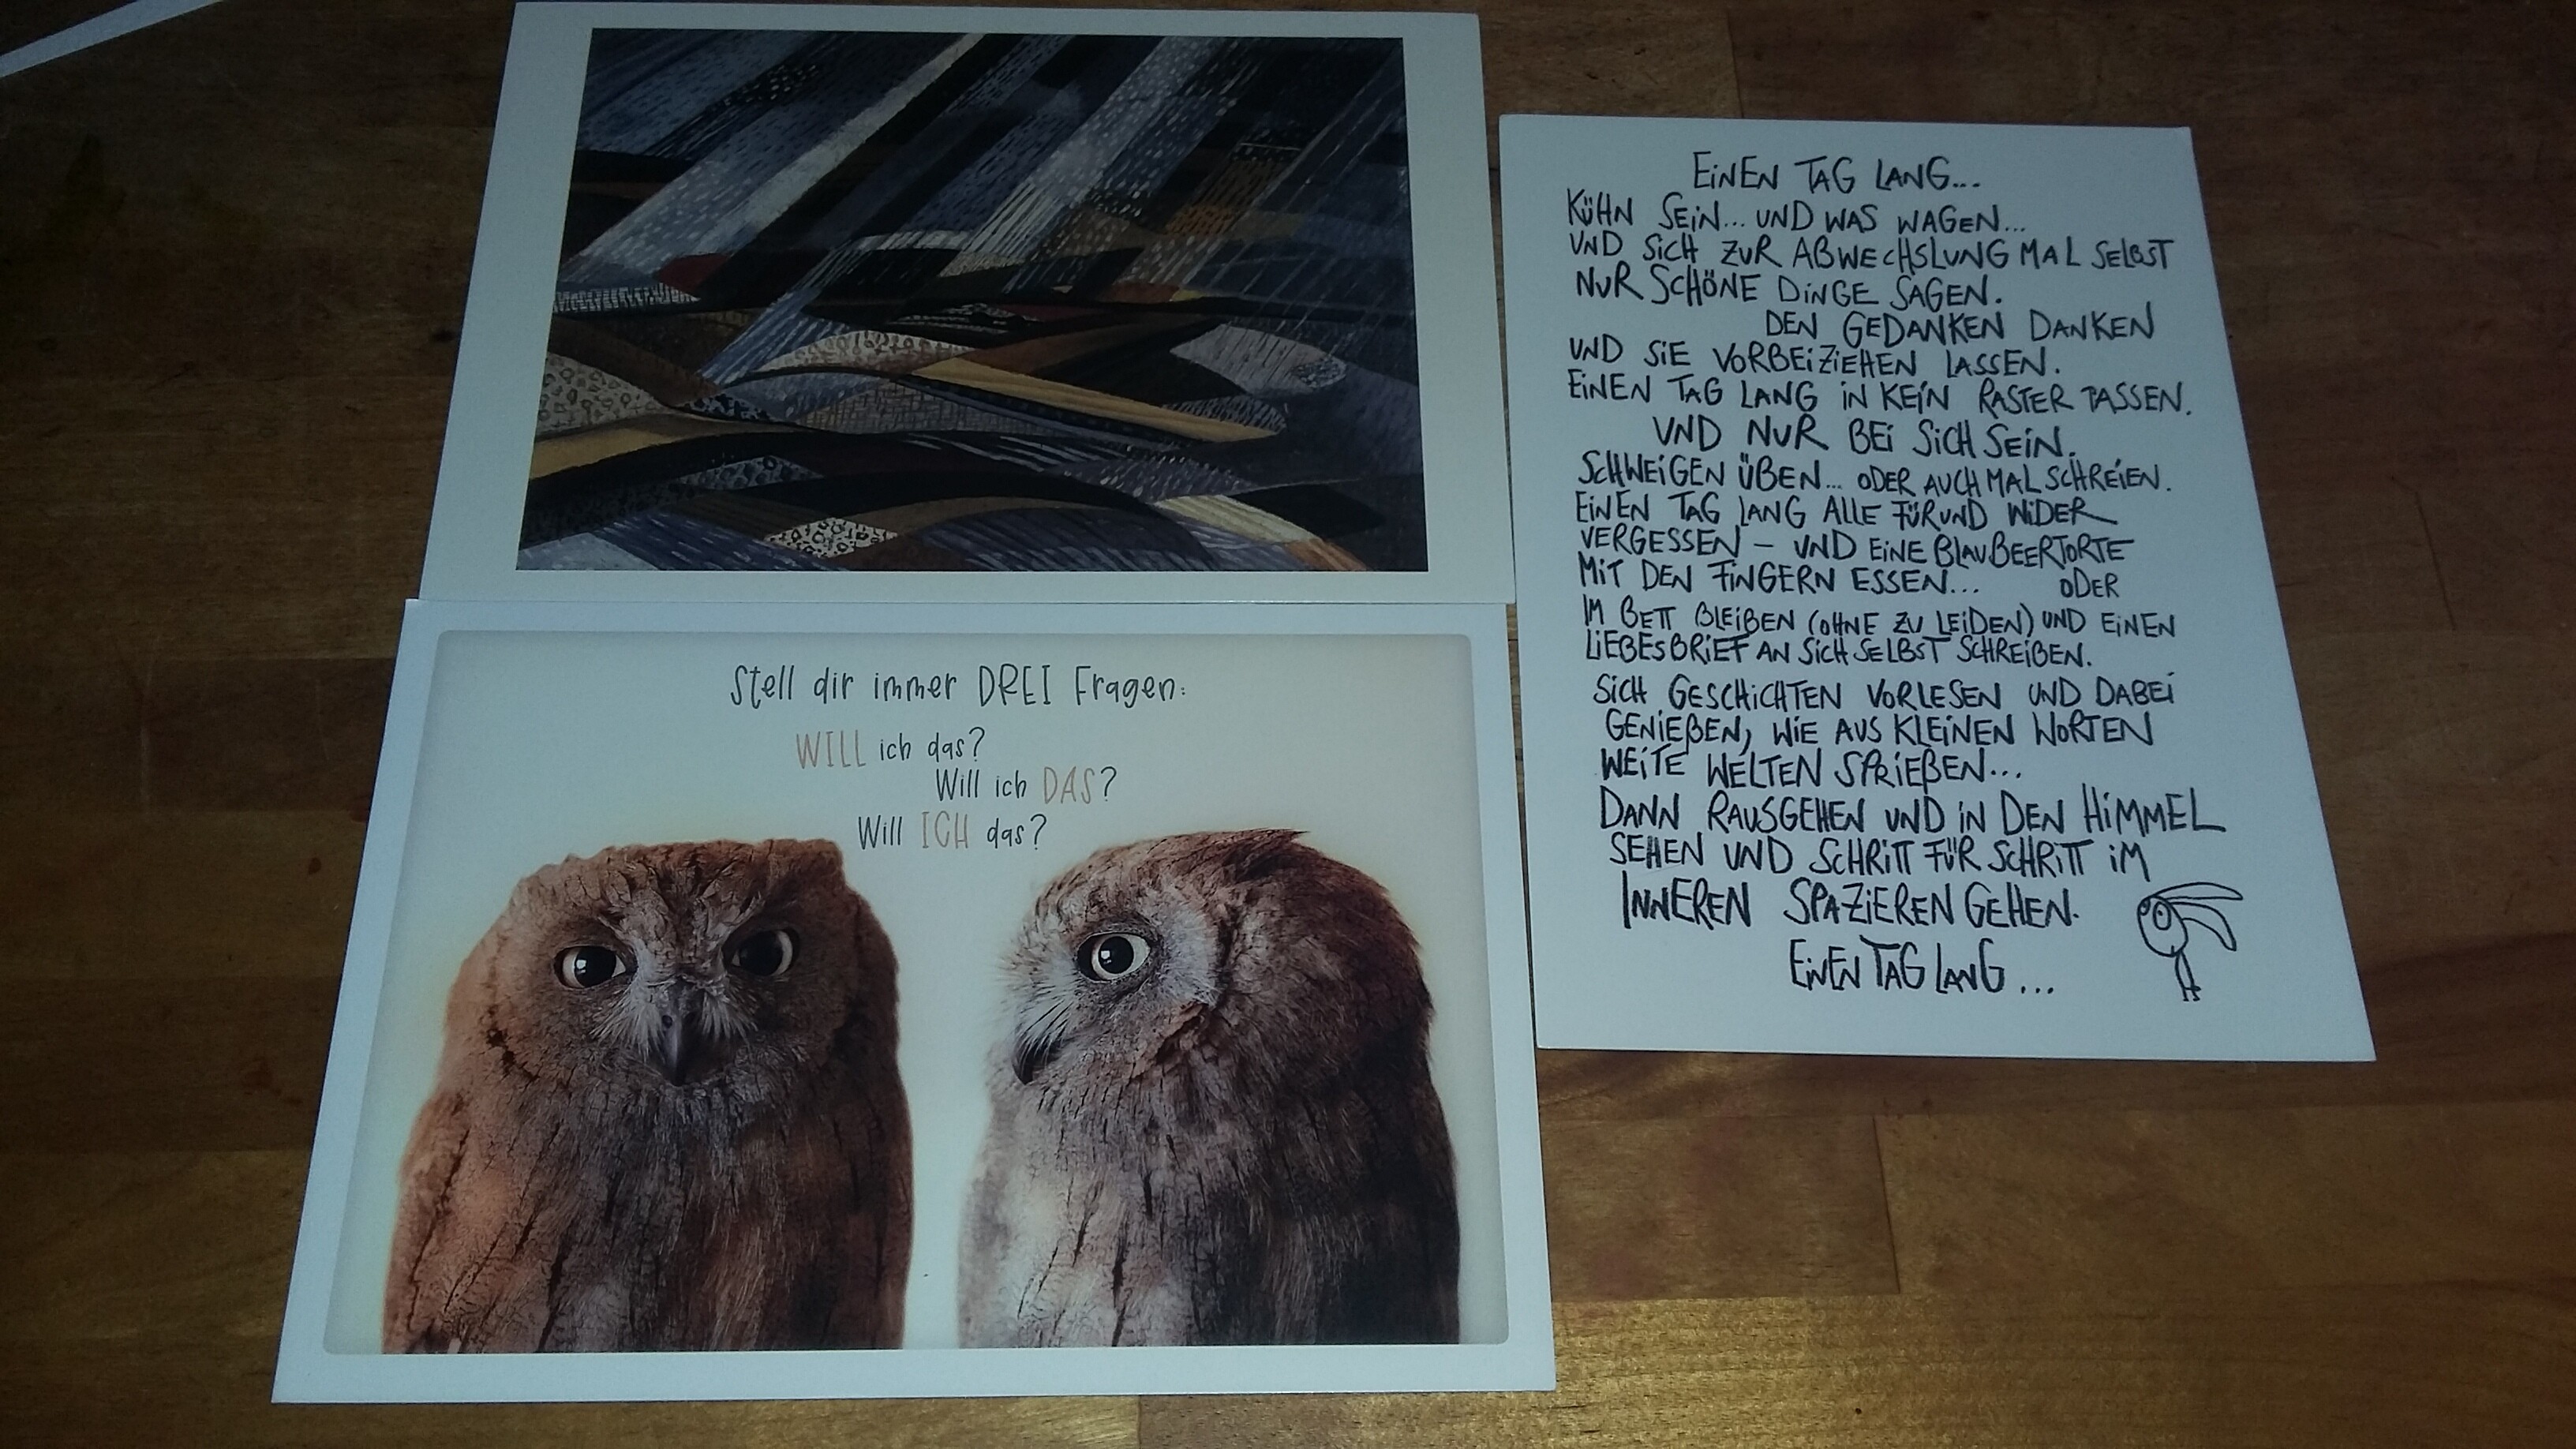 Stell dir immer DREI Fragen:
WILL ich das?
Will ich DAS?
Will ICH das?
EINEN TAG LANG...
KÜHN SEIN... UND WAS WAGEN...
UND SICH ZUR ABWECHSLUNG MAL SELBST
NUR SCHÖNE DINGE SAGEN.
DEN GEDANKEN DANKEN
UND SIE VORBEIZIEHEN LASSEN.
EINEN TAG LANG IN KEIN RASTER PASSEN.
UND NUR BEI SICH SEIN.
SCHWEIGEN ÜBEN... ODER AUCH MAL SCHREIEN.
EINEN TAG LANG ALLE FÜR UND WIDER
VERGESSEN – UND EINE BLAUBEERTORTE
MIT DEN FINGERN ESSEN... ODER
IM BETT BLEIBEN (OHNE ZU LEIDEN) UND EINEN
LIEBESBRIEF AN SICH SELBST SCHREIBEN.
SICH GESCHICHTEN VORLESEN UND DABEI
GENIEßEN, WIE AUS KLEINEN WORTEN
WEITE WELTEN SPRIEßEN...
DANN RAUSGEHEN UND IN DEN HIMMEL
SEHEN UND SCHRITT FÜR SCHRITT IM
INNEREN SPAZIEREN GEHEN.
EINEN TAG LANG...